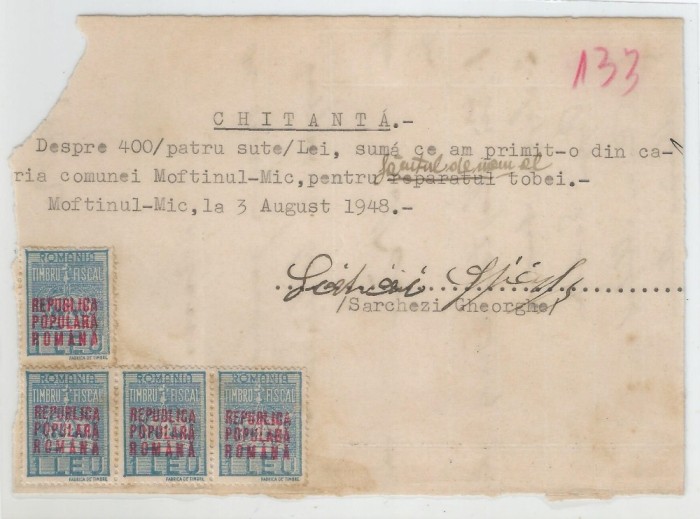 133
CHITANTÁ.-
Despre 400/patru sute/Lei, sumá ce am primit-o din ca-
ria comunei Moftinul-Mic, pentru reparatul tobei.-
Moftinul-Mic, la 3 August 1948.-
/Sarchezi Gheorghe/
ROMANIA
TIMBRU FISCAL
REPUBLICA
POPULARĂ
ROMÂNĂ
1 LEU
FABRICA DE TIMBRE
ROMANIA ROMANIA ROMANIA
TIMBRU FISCAL TIMBRU FISCAL TIMBRU FISCAL
REPUBLICA REPUBLICA REPUBLICA
POPULARĂ POPULARĂ POPULARĂ
ROMÂNĂ ROMÂNĂ ROMÂNĂ
1 LEU 1 LEU 1 LEU
FABRICA DE TIMBRE FABRICA DE TIMBRE FABRICA DE TIMBRE